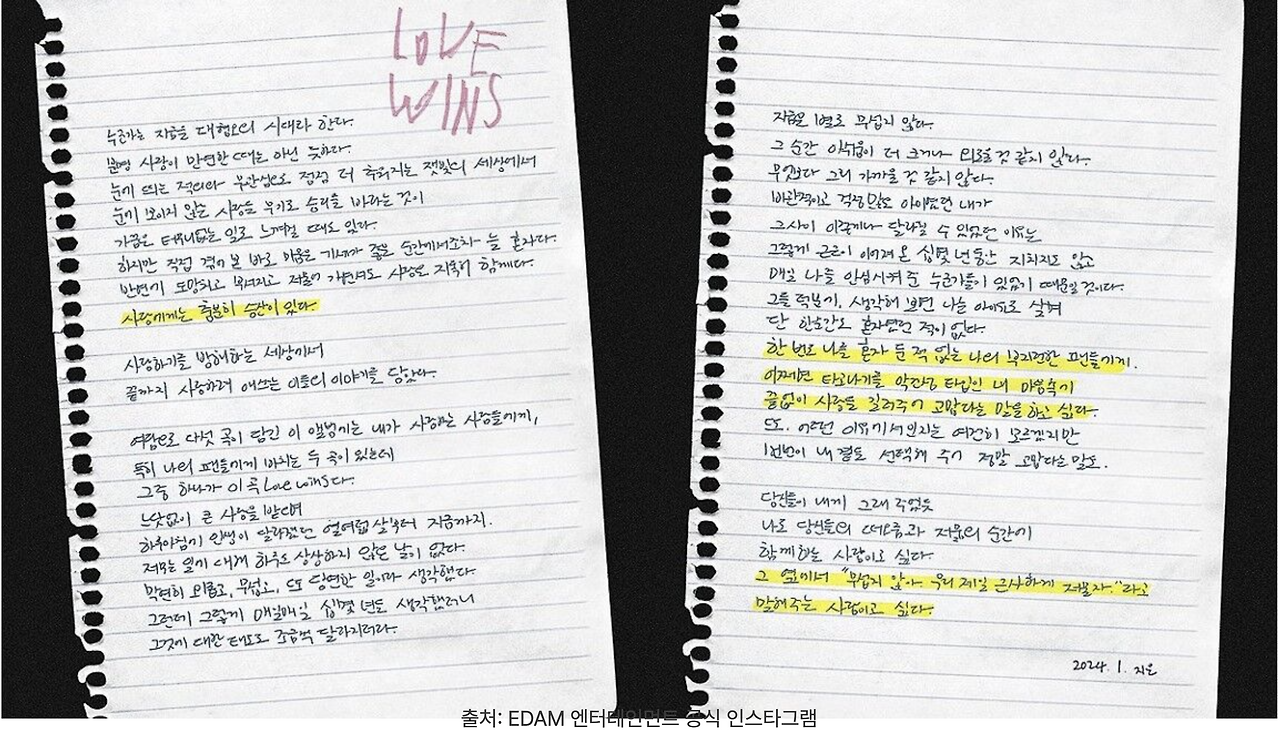 LOVE
WINS
누군가는 지금을 대혐오의 시대라 한다.
분명 사랑이 만연한 때는 아닌 듯하다.
눈에 띄는 적의와 무관심으로 점점 더 추워지는 잿빛의 세상에서
눈에 보이지 않는 사랑을 무기로 승리를 바라는 것이
가끔은 터무니없는 일로 느껴질 때도 있다.
하지만 직접 겪어본 바로 미움은 기세가 좋은 순간에서조차 늘 혼자다.
반면에 도망치고 부서지고 저물어 가면서도 사랑은 지독히 함께다.
사랑에게는 충분히 승산이 있다.
사랑하기를 방해하는 세상에서
끝까지 사랑하려 애쓰는 이들의 이야기를 담았다.
여담으로 다섯 곡이 담긴 이 앨범에는 내가 사랑하는 사람들에게,
특히 나의 팬들에게 바치는 두 곡이 있는데
그중 하나가 이 곡 Love wins다.
느닷없이 큰 사랑을 받으며
하루아침에 인생이 달라졌던 열여덟 살부터 지금까지.
저무는 일에 대해 하루도 상상하지 않은 날이 없다.
막연히 외롭고, 무섭고, 또 당연한 일이라 생각했다.
그런데 그렇게 매일매일 십몇 년도 생각했더니
그것에 대한 태도도 조금씩 달라지더라.
지금은 1열로 무섭지 않다.
그 순간 아쉬움이 더 크거나 외로울 것 같지 않다.
무엇보다 그리 가까울 것 같지 않다.
비관적이고 걱정 많은 아이였던 내가
그 사이 이렇게나 달라질 수 있었던 이유는
그렇게 근근이 이어져 온 십몇 년 동안 지치지도 않고
매일 나를 안심시켜 준 누군가들이 있었기 때문일 것이다.
그들 덕분에, 생각해 보면 나는 아이유로 살며
단 한순간도 혼자였던 적이 없다.
한 번도 나를 혼자 둔 적 없는 나의 부지런한 팬들에게.
어쩌면 타고나기를 악건성 타입인 내 마음속에
끝없이 사랑을 길러주어 고맙다는 말을 하고 싶다.
또. 어떤 이유에서인지는 여전히 모르겠지만
1번번이 내 곁을 선택해 주어 정말 고맙다는 말도.
당신들이 내게 그래 주었듯
나도 당신들의 떠오름과 저묾의 순간에
함께하는 사람이고 싶다.
그 옆에서 “무섭지 않아 우리 제일 근사하게 저물자.”라고
말해주는 사람이고 싶다.
2024. 1. 지은
출처: EDAM 엔터테인먼트 공식 인스타그램